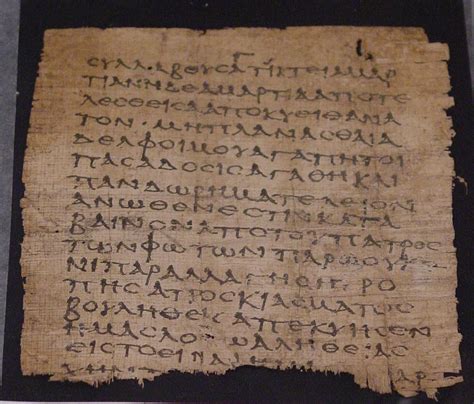 ϹΥΛΛΑΒΟΥϹΑ ΤΙΚΤΕΙ ΑΜΑΡ
ΤΙΑΝ Η ΔΕ ΑΜΑΡΤΙΑ ΑΠΟΤΕ
ΛΕϹΘΕΙϹΑ ΑΠΟΚΥΕΙ ΘΑΝΑ
ΤΟΝ · ΜΗ ΠΛΑΝΑϹΘΑΙ Α
ΔΕΛΦΟΙ ΜΟΥ ΑΓΑΠΗΤΟΙ
ΠΑϹΑ ΔΟϹΙϹ ΑΓΑΘΗ ΚΑΙ
ΠΑΝ ΔΩΡΗΜΑ ΤΕΛΕΙΟΝ
ΑΝΩΘΕΝ ΕϹΤΙΝ ΚΑΤΑ
ΒΑΙΝΟΝ ΑΠΟ ΤΟΥ ΠΑΤΡΟϹ
ΤΩΝ ΦΩΤΩΝ ΠΑΡ Ω ΟΥΚ
ΝΙ ΠΑΡΑΛΛΑΓΗ Η ΡΟ
ΠΗϹ ΑΠΟϹΚΙΑϹΜΑΤΟϹ
ΒΟΥΛΗΘΕΙϹ ΑΠΕΚΥΗϹΕΝ
ΗΜΑϹ ΛΟΓΩ ΑΛΗΘΕΙΑϹ
ΕΙϹ ΤΟ ΕΙΝΑΙ